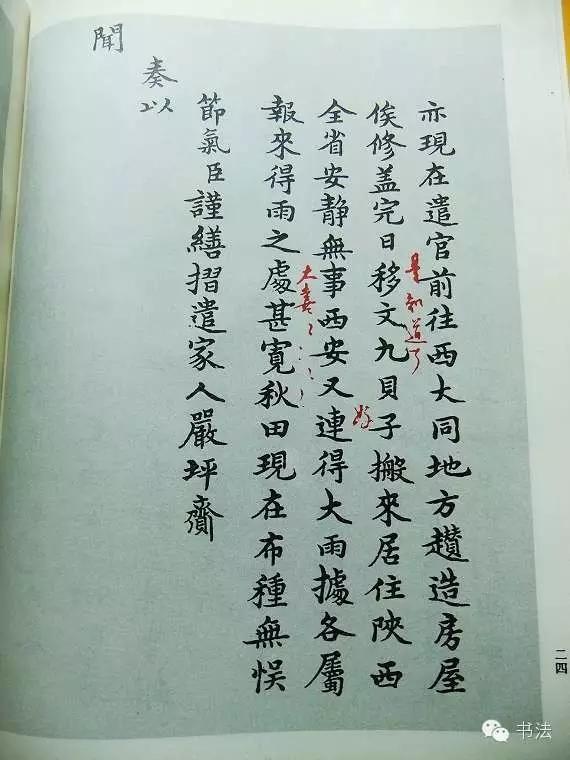 亦現在遣官前往西大同地方趲造房屋
是知道了
俟修盖完日移文九貝子搬來居住陝西
好
全省安静無事西安又連得大雨據各屬
大喜
報來得雨之處甚寬秋田現在布種無悮
節氣臣謹繕摺遣家人嚴坪齎
奏以
聞
二四
书法